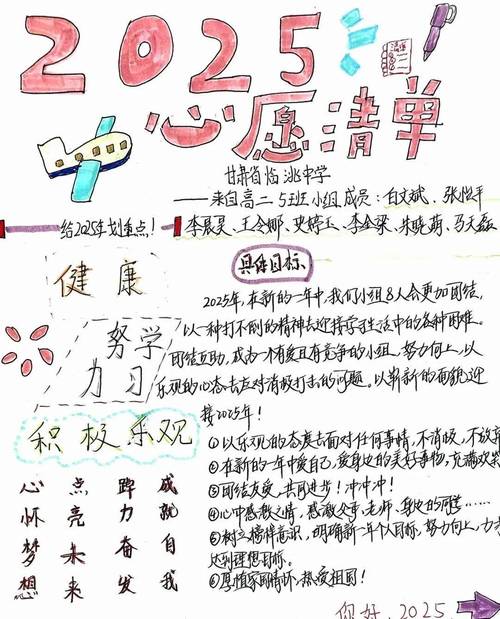 2025
心愿清单
甘肃省临洮中学
——来自高二5班小组成员：白文斌、张悦平
给2025年划重点！
李晨昊、王令娜、史婷玉、李金梁、朱晓萌、马天磊
健康
努力
学习
积极乐观
心怀梦想
点亮未来
踔力奋发
成就自我
具体目标
2025年，在新的一年中，我们小组8人会更加团结，
以一种打不倒的精神去迎接学习生活中的各种困难。
团结互助，成为一个有爱且有竞争的小组，努力向上，以
乐观的心态去应对消极打击的问题。以崭新的面貌迎
接2025年！
①以乐观的态度去面对任何事情，不消极，不放弃
②在新的一年中爱自己，爱身边的美好事物，充满欢
③团结友爱，共同进步！冲冲冲！
④心中感激之情，感激父母、老师、身边的同学……
⑤树立榜样意识，明确新一年个人目标，努力向上，力
达到理想目标。
⑥厚植家国情怀，热爱祖国！
你好，2025